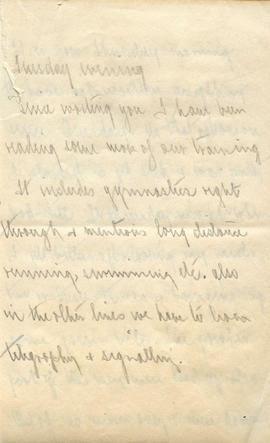 Tuesday evening
Since writing you I have been
reading some more of our training
It includes gymnastics right
through & mentions long distance
running, swimming etc. also
in the other lines we have to learn
telegraphy & signalling.